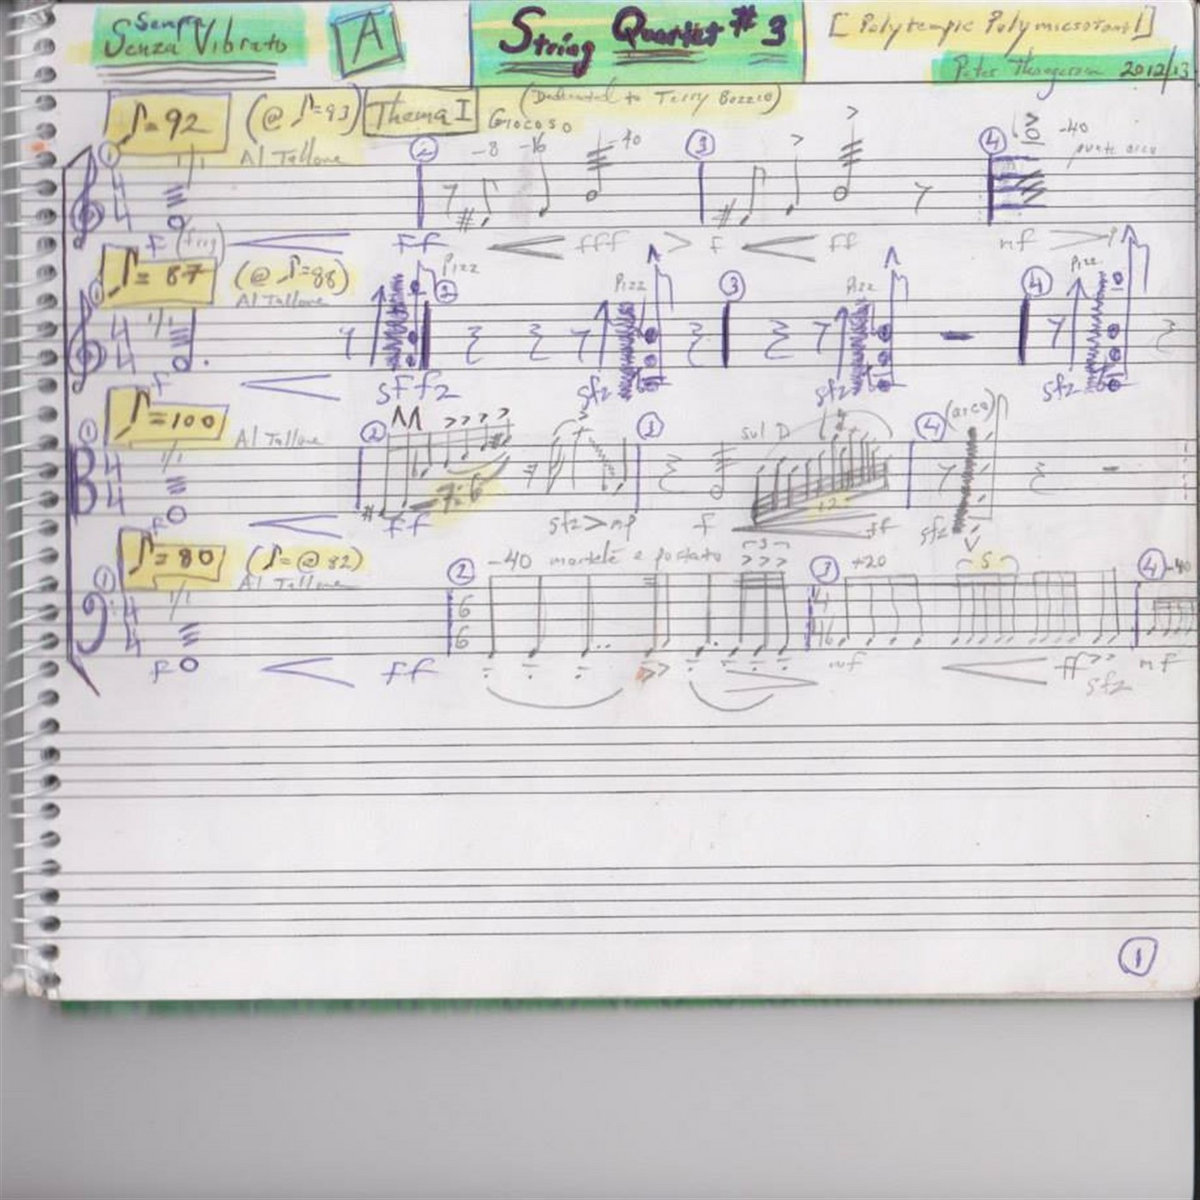 Semp
Senza Vibrato
A
String Quartet # 3
[Polytempic Polymicrotonal]
Peter Thoegersen 2012/13
♪=92 (@ ♪=93) Thema I Giocoso (Dedicated to Terry Bozzio)
① Al Tallone ② -8 -16 -40 ③ ④ -40
punta arco
4 4 1/1
F ff fff f ff mf p
♪= 87 (@ ♪=88)
① Al Tallone Pizz ② Pizz ③ Pizz ④ Pizz
4 4 1/1
f sffz sfz sfz sfz
♪=100
① Al Tallone ② 7:6 ③ sul D 12 ④ (arco)
4 4 1/1
F ff sfz > mp f ff sfz
♪= 80 (♪= @ 82)
① Al Tallone ② -40 martelé e portato 3 ③ +20 5 ④ -40
4 4 1/1
6 6
4 16
F ff mf ff sfz mf
①